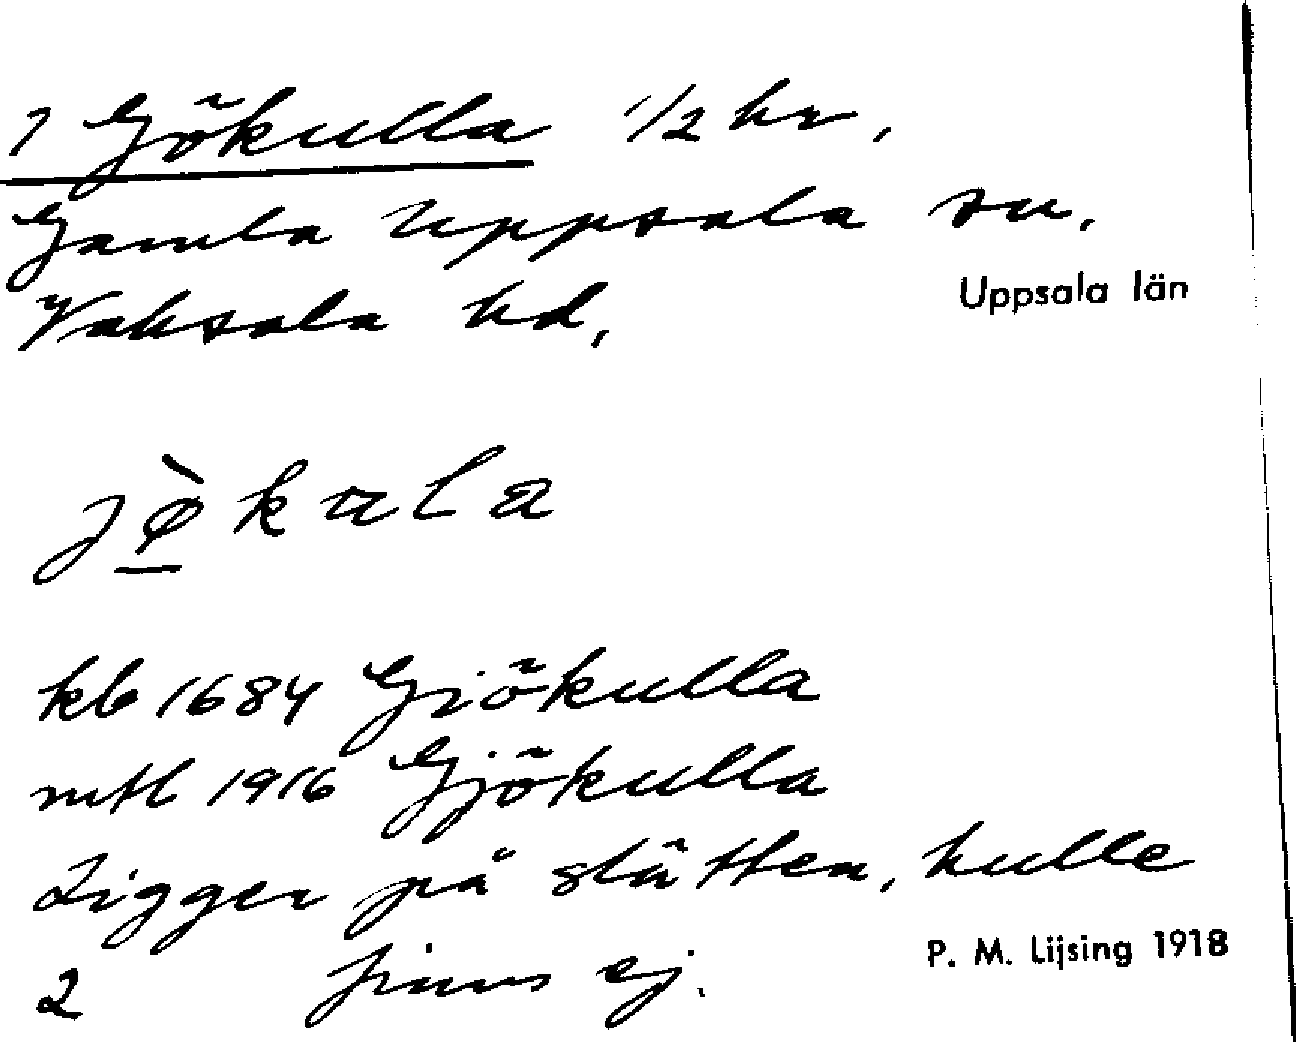 1 Gökulla 1/2 hr,
Gamla Uppsala sn,
Vaksala hd,
Uppsala län
jø̀kula
kb 1684 Giökulla
mtl 1916 Gjökulla
Ligger på slätten, kulle
2 finns ej.
P. M. Lijsing 1918